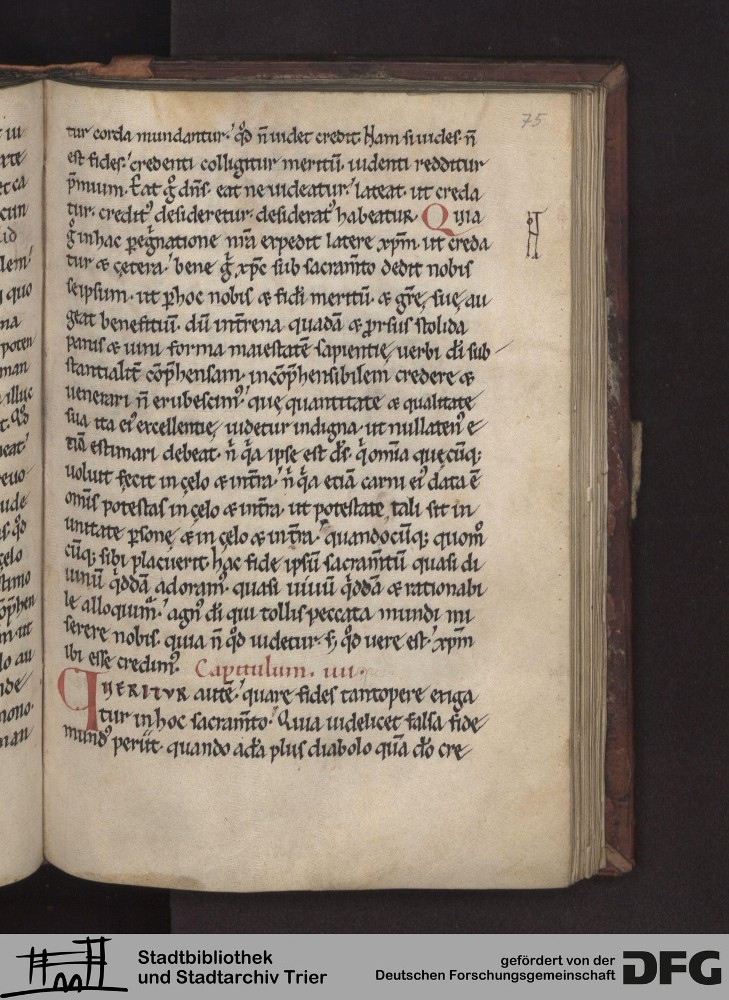 75
tur corda mundantur. qd̄ n̄ uidet credit. Nam si uides. n̄
est fides. credenti colligitur meritū. uidenti redditur
p̄mium. Eat g̊ dn̄s. eat ne uideatur. lateat. ut creda
tur. creditꝰ desideretur. desideratꝰ habeatur. Quia
g̊ in hac peg̊natione nr̄a expedit latere xp̄m. ut creda
tur & cetera. bene g̊ xp̄c sub sacram̄to dedit nobis
seipsum. ut ꝑ hoc nobis & fidei meritū. & gr̄ę suę au
geat benefitiū. dū int̄rena quadā & ꝓrsus stolida
panis & uini forma maiestatē sapientię uerbi dī sub
stantialit̄ cōp̄hensam. incōp̄hensibilem credere &
uenerari n̄ erubescimꝰ. quę quantitate & qualitate
sua ita eiꝰ excellentię uidetur indigna. ut nullatenꝰ e
tiā estimari debeat. n̄ q̊a ipse est dſ. q̊ omīa quęcūq;
uoluit fecit in celo & in t̄ra. n̄ q̊a etiā carni eiꝰ data ē
omīs potestas in celo & in t̄ra. ut potestate tali sit in
unitate ꝑsonę & in celo & in t̄ra. quandocūq; quom̊
cūq; sibi placuerit. hac fide ipsū sacram̄tū quasi di
uinū q̊ddā adoramꝰ. quasi uiuū q̊ddā & rationabi
le alloquim̄. agnꝰ dī qui tollis peccata mundi mi
serere nobis. quia n̄ qd̄ uidetur. s; qd̄ uere est. xp̄m
ibi esse credimꝰ. Capitulum. iiii.
QUERITUR autē. quare fides tantopere exiga
tur in hoc sacram̄to. Quia uidelicet falsa fide
mundꝰ periit. quando adā plus diabolo quā dō cre
Stadtbibliothek
und Stadtarchiv Trier
gefördert von der
Deutschen Forschungsgemeinschaft
DFG